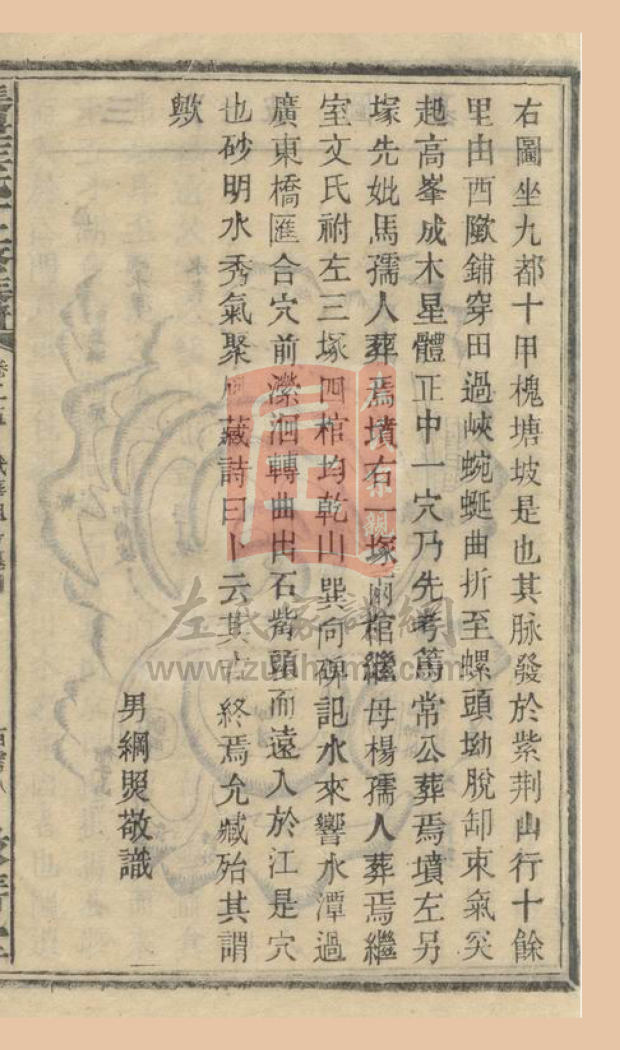 右圖坐九都十甲槐塘坡是也其脉發於紫荆山行十餘
里由西歐鋪穿田過峽蜿蜒曲折至螺頭坳脫卸束氣突
起高峯成木星體正中一穴乃先考篤常公葬焉墳左另
塚先妣馬孺人葬焉墳右一塚兩棺繼母楊孺人葬焉繼
室文氏祔左三塚四棺均乾山巽向碑記水來響水潭過
廣東橋匯合穴前瀠洄轉曲出石嘴頭而遠入於江是穴
也砂明水秀氣聚風藏詩曰卜云其吉終焉允臧殆其謂
歟
男綱煚敬識
左氏家譜網
www.zuoshome.com